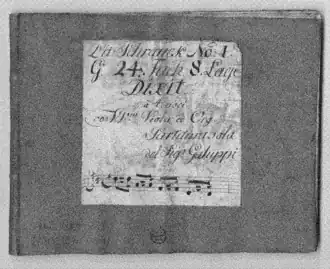 Schranck No: 1
24. Fach 8. Lage
DIXIT
à 4 voci
co VVni Viola e Org
Partitura sola
del Sigr Galuppi